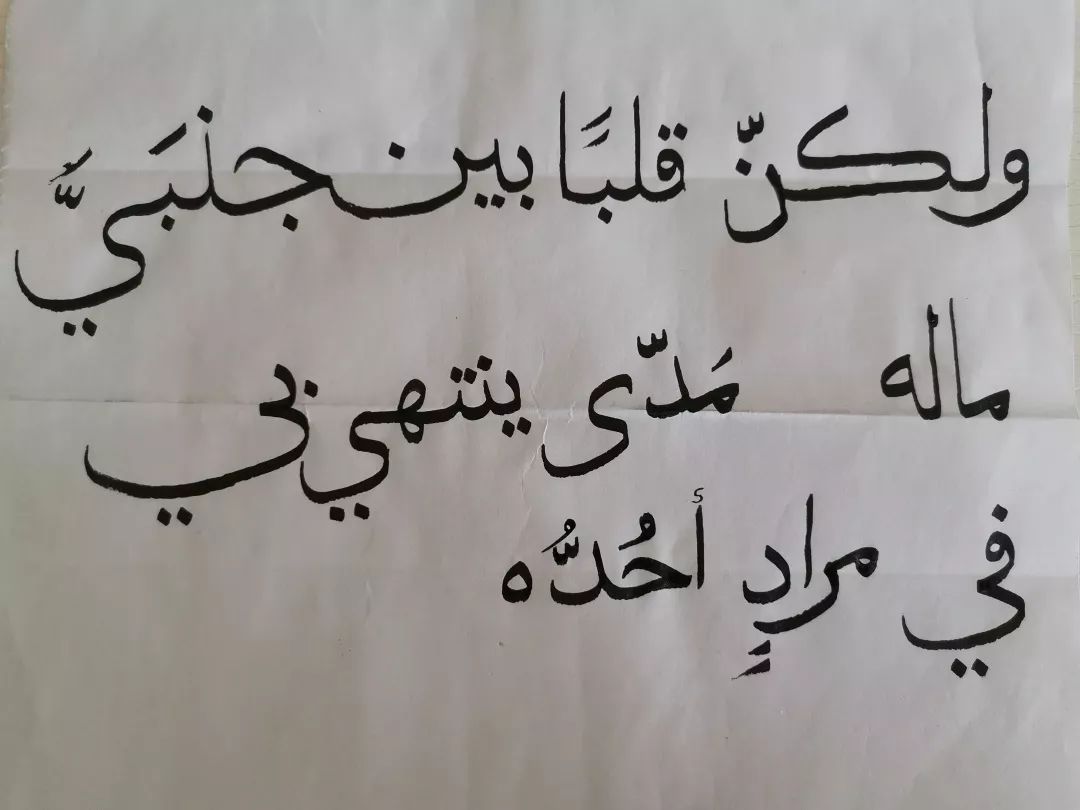 ولكنّ قلبًا بين جنبَيَُّ
ماله مَدّى ينتهي بي
في مرادٍ أحُدُّه